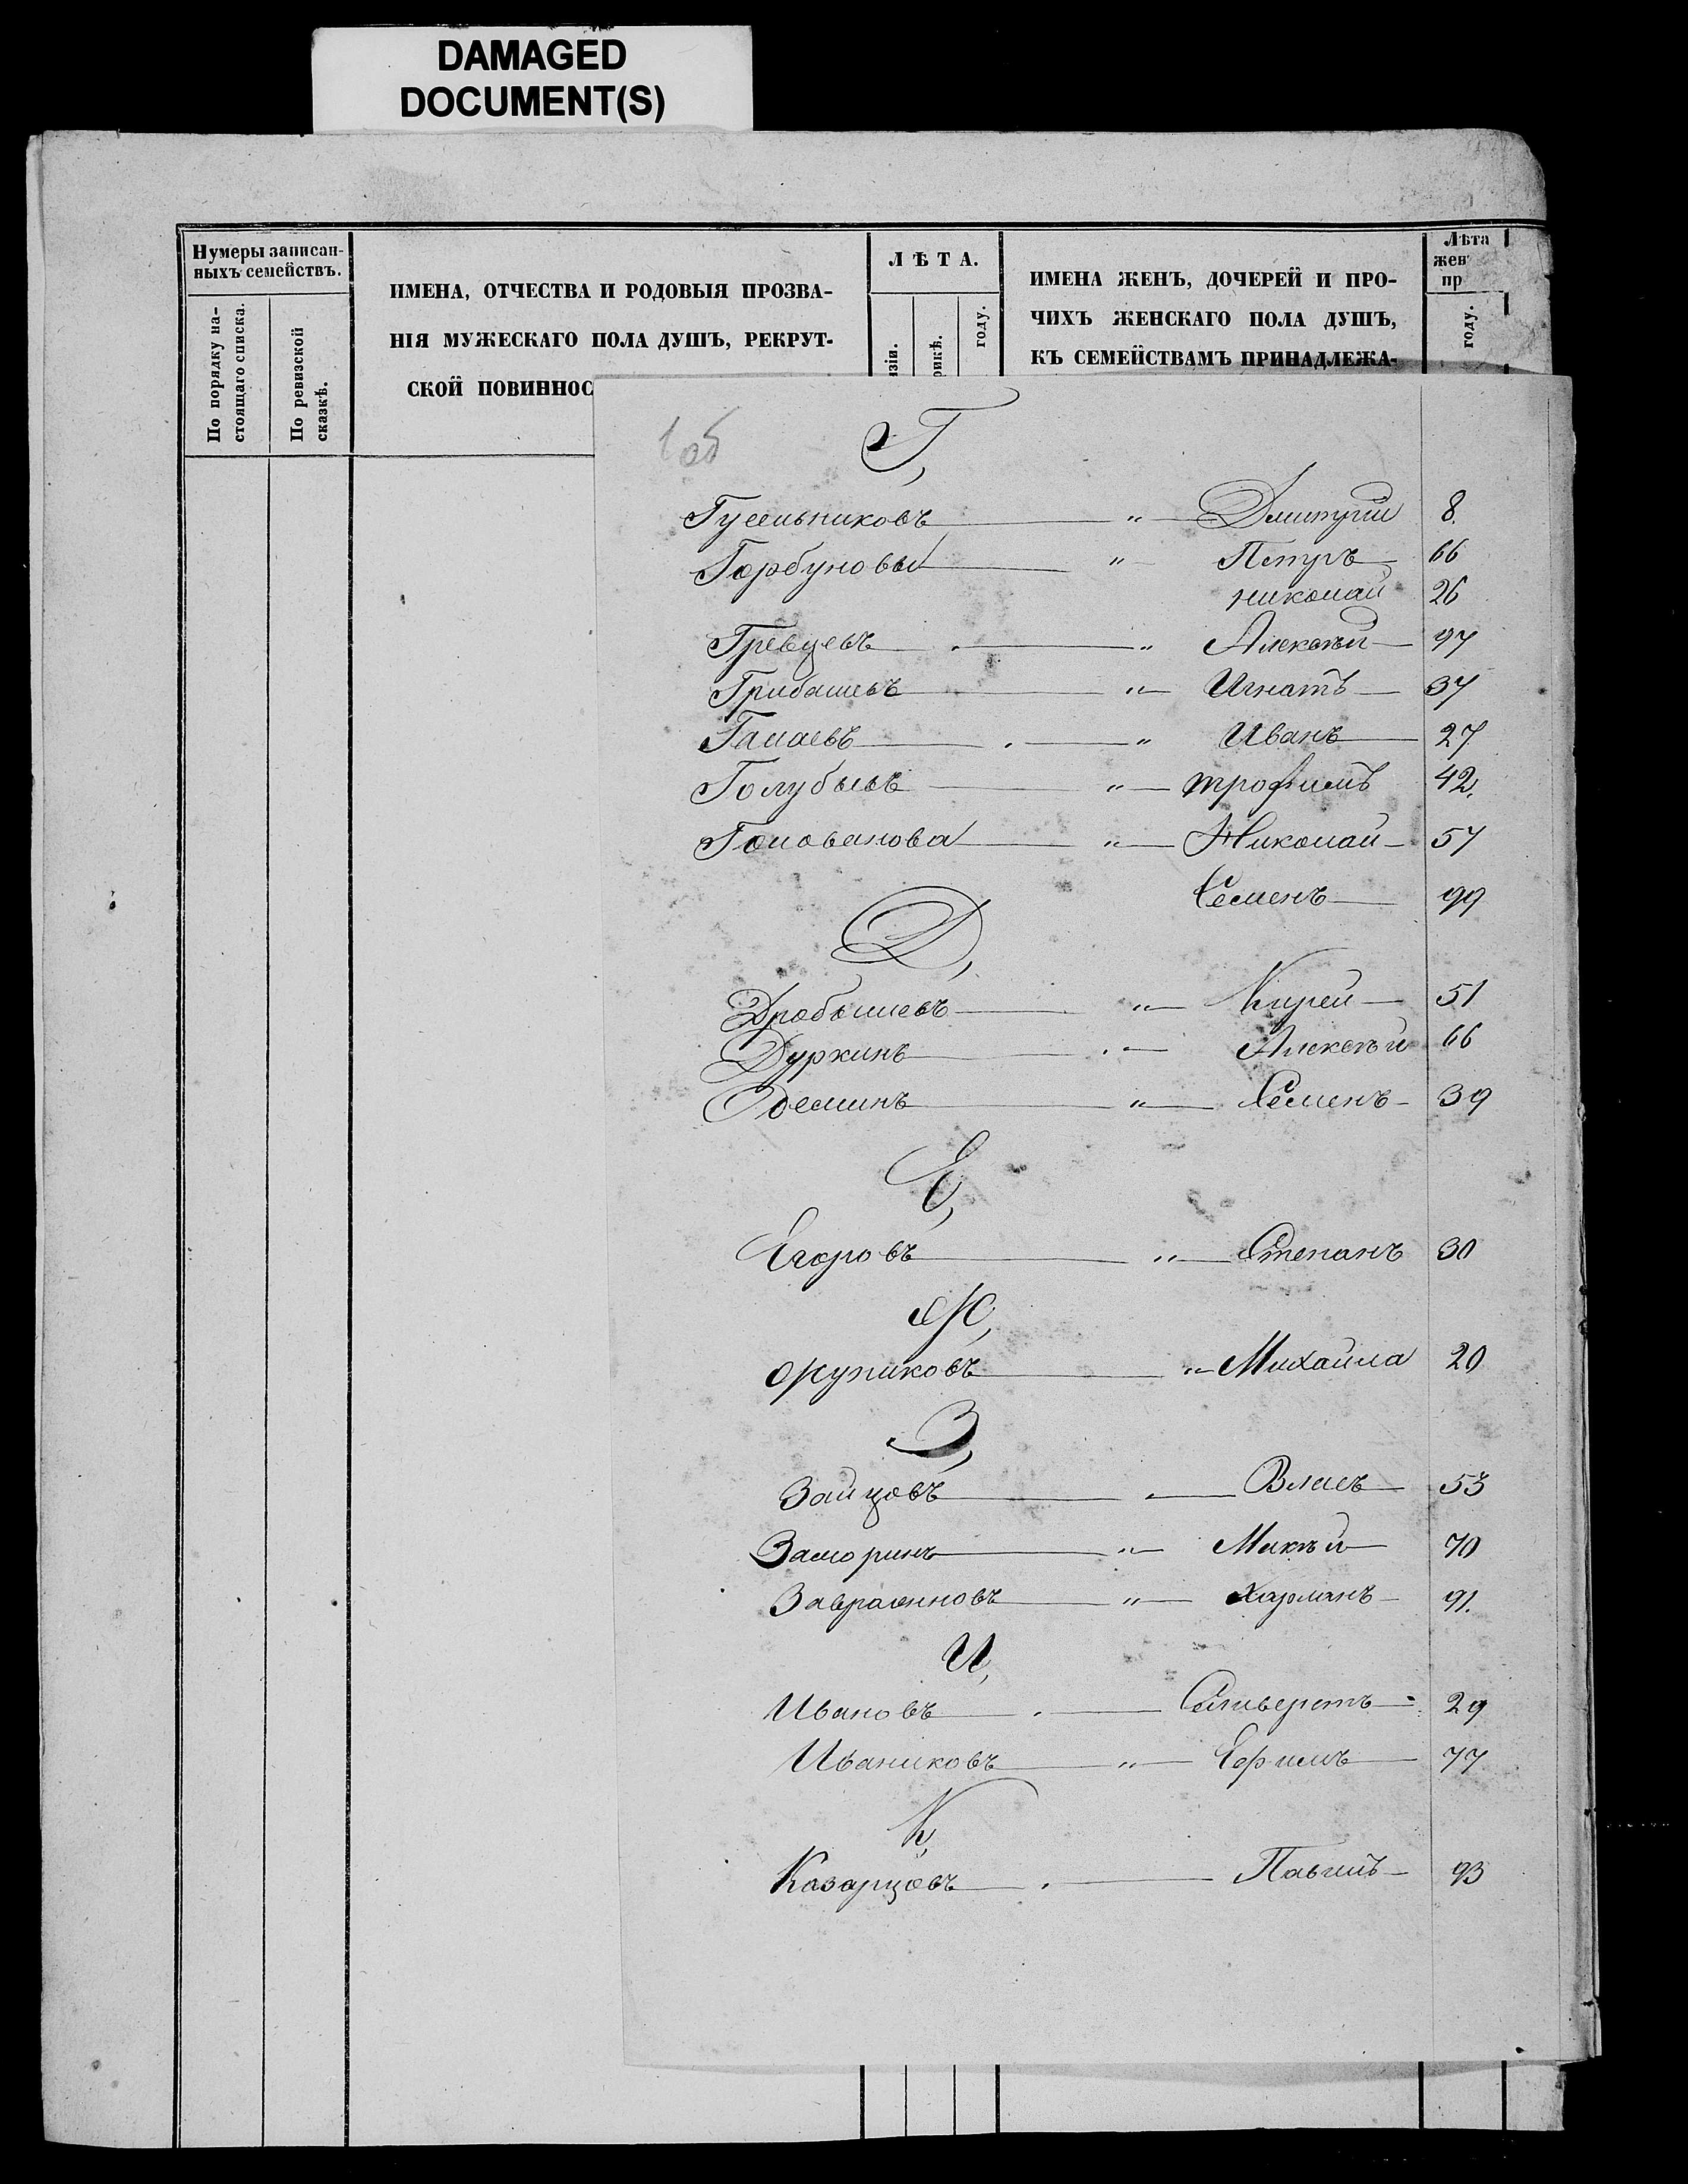 DAMAGED
DOCUMENT(S)
Нумеры записан-
ныхъ семействъ.
По порядку на-
стоящаго списка.
По ревизской
сказкѣ.
ИМЕНА, ОТЧЕСТВА И РОДОВЫЯ ПРОЗВА-
НІЯ МУЖЕСКАГО ПОЛА ДУШЪ, РЕКРУТ-
СКОЙ ПОВИННОС
ЛѢТА.
зіи.
рикѣ.
году.
ИМЕНА ЖЕНЪ, ДОЧЕРЕЙ И ПРО-
ЧИХЪ ЖЕНСКАГО ПОЛА ДУШЪ,
КЪ СЕМЕЙСТВАМЪ ПРИНАДЛЕЖА-
Лѣта
жен
пр
году.
105
Г,
Гусельниковъ " Дмитрій 8.
Горбуновы " Петръ 66
Николай 26
Гревцевъ " Алексѣй 97
Грибашевъ " Игнатъ 37
Гамаевъ " Иванъ 27
Голубывъ " трофимъ 42.
Голованова " Николай 57
Семенъ 99
Д,
Дробышевъ " Кирей 51
Дуркинъ Алексѣй 66
Деминъ " Семенъ 39
Е,
Егоровъ " Степанъ 30
Ж,
Жупиковъ " Михайла 20
З,
Зайцовъ Власъ 53
Заморинъ " Макѣй 70
" Харланъ 91.
И,
Ивановъ Селиверстъ 29
Иваниковъ " Ефимъ 77
К,
Казарцовъ Павилъ 93